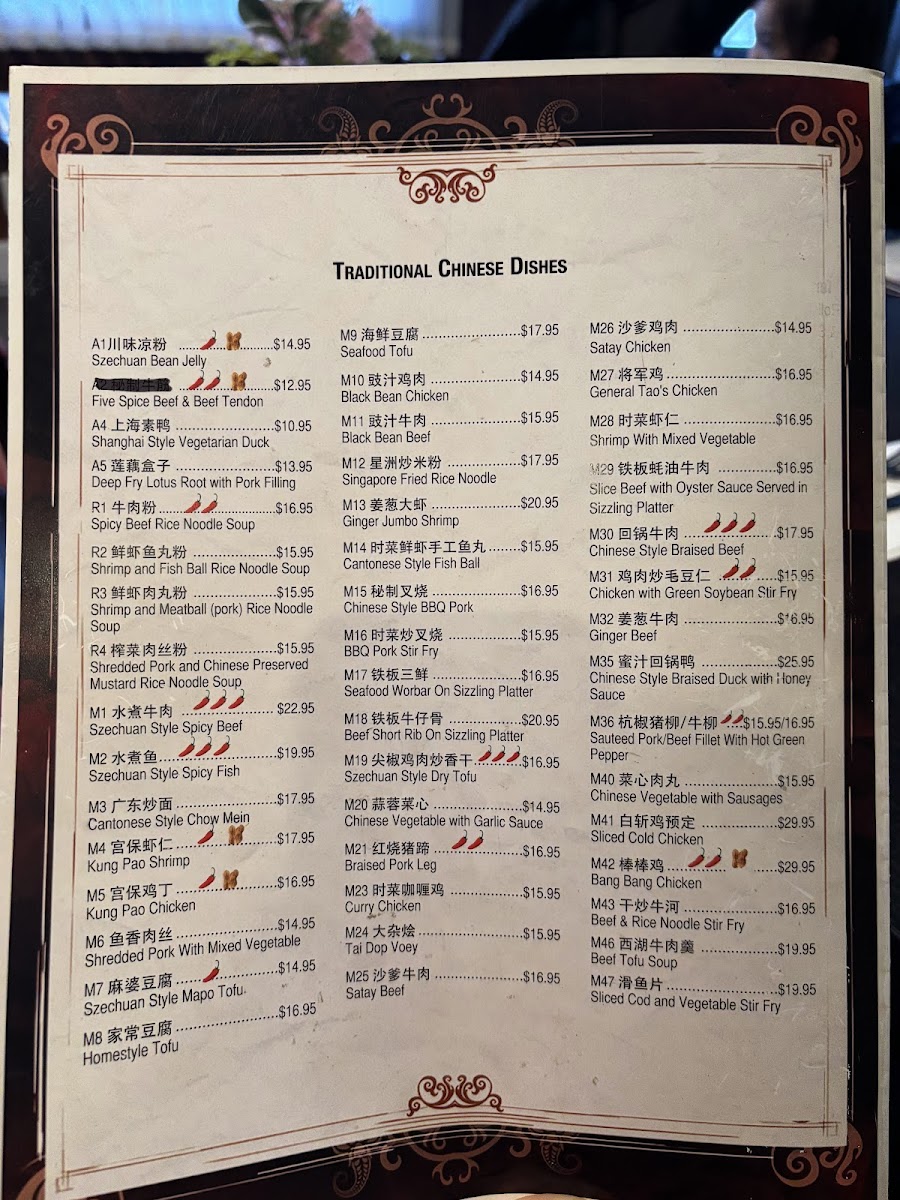 TRADITIONAL CHINESE DISHES
A1川味凉粉 ..........$14.95
Szechuan Bean Jelly
..........$12.95
Five Spice Beef & Beef Tendon
A4 上海素鸭 ..........$10.95
Shanghai Style Vegetarian Duck
A5 莲藕盒子 ..........$13.95
Deep Fry Lotus Root with Pork Filling
R1 牛肉粉 ..........$16.95
Spicy Beef Rice Noodle Soup
R2 鲜虾鱼丸粉 ..........$15.95
Shrimp and Fish Ball Rice Noodle Soup
R3 鲜虾肉丸粉 ..........$15.95
Shrimp and Meatball (pork) Rice Noodle
Soup
R4 榨菜肉丝粉 ..........$15.95
Shredded Pork and Chinese Preserved
Mustard Rice Noodle Soup
M1 水煮牛肉 ..........$22.95
Szechuan Style Spicy Beef
M2 水煮鱼..........$19.95
Szechuan Style Spicy Fish
M3 广东炒面 ..........$17.95
Cantonese Style Chow Mein
M4 宫保虾仁 ..........$17.95
Kung Pao Shrimp
M5 宫保鸡丁 ..........$16.95
Kung Pao Chicken
M6 鱼香肉丝 ..........$14.95
Shredded Pork With Mixed Vegetable
M7 麻婆豆腐 ..........$14.95
Szechuan Style Mapo Tofu
M8 家常豆腐 ..........$16.95
Homestyle Tofu
M9 海鲜豆腐 ..........$17.95
Seafood Tofu
M10 豉汁鸡肉 ..........$14.95
Black Bean Chicken
M11 豉汁牛肉 ..........$15.95
Black Bean Beef
M12 星洲炒米粉 ..........$17.95
Singapore Fried Rice Noodle
M13 姜葱大虾 ..........$20.95
Ginger Jumbo Shrimp
M14 时菜鲜虾手工鱼丸........$15.95
Cantonese Style Fish Ball
M15 秘制叉烧 ..........$16.95
Chinese Style BBQ Pork
M16 时菜炒叉烧 ..........$15.95
BBQ Pork Stir Fry
M17 铁板三鲜 ..........$16.95
Seafood Worbar On Sizzling Platter
M18 铁板牛仔骨 ..........$20.95
Beef Short Rib On Sizzling Platter
M19 尖椒鸡肉炒香干 ..........$16.95
Szechuan Style Dry Tofu
M20 蒜蓉菜心 ..........$14.95
Chinese Vegetable with Garlic Sauce
M21 红烧猪蹄 ..........$16.95
Braised Pork Leg
M23 时菜咖喱鸡 ..........$15.95
Curry Chicken
M24 大杂烩 ..........$15.95
Tai Dop Voey
M25 沙爹牛肉 ..........$16.95
Satay Beef
M26 沙爹鸡肉 ..........$14.95
Satay Chicken
M27 将军鸡 ..........$16.95
General Tao's Chicken
M28 时菜虾仁 ..........$16.95
Shrimp With Mixed Vegetable
M29 铁板蚝油牛肉 ..........$16.95
Slice Beef with Oyster Sauce Served in
Sizzling Platter
M30 回锅牛肉 ..........$17.95
Chinese Style Braised Beef
M31 鸡肉炒毛豆仁 ..........$15.95
Chicken with Green Soybean Stir Fry
M32 姜葱牛肉 ..........$16.95
Ginger Beef
M35 蜜汁回锅鸭 ..........$25.95
Chinese Style Braised Duck with Honey
Sauce
M36 杭椒猪柳/牛柳 ..$15.95/16.95
Sauteed Pork/Beef Fillet With Hot Green
Pepper
M40 菜心肉丸 ..........$15.95
Chinese Vegetable with Sausages
M41 白斩鸡预定 ..........$29.95
Sliced Cold Chicken
M42 棒棒鸡 ..........$29.95
Bang Bang Chicken
M43 干炒牛河 ..........$16.95
Beef & Rice Noodle Stir Fry
M46 西湖牛肉羹 ..........$19.95
Beef Tofu Soup
M47 滑鱼片 ..........$19.95
Sliced Cod and Vegetable Stir Fry